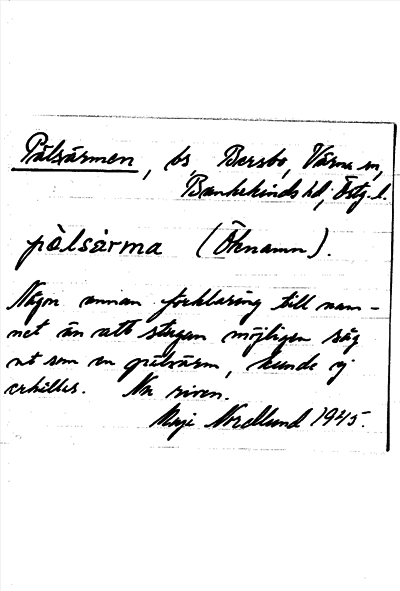 Pälsärmen, bs, Bersbo, Värna sn,
Bankekinds hd, Östg. l.
pälsärma (Öknamn).
Någon annan förklaring till nam-
net än att stugan möjligen såg
ut som en pälsärm, kunde ej
erhållas. Nu riven.
Maji Nordlund 1945.